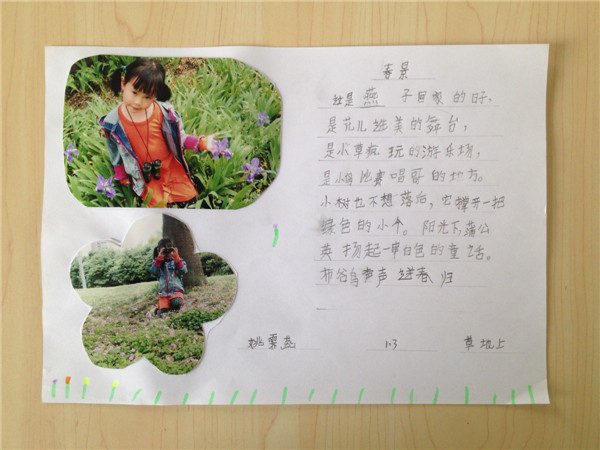 春景
这是燕子回家的日子，
是花儿选美的舞台，
是小草疯玩的游乐场，
是小鸟比赛唱歌的地方。
小树也不想落后，也撑开一把
绿色的小伞。阳光下，蒲公
英扬起一串白色的童话。
布谷鸟声声送春归
姚霁
1.3
草地上